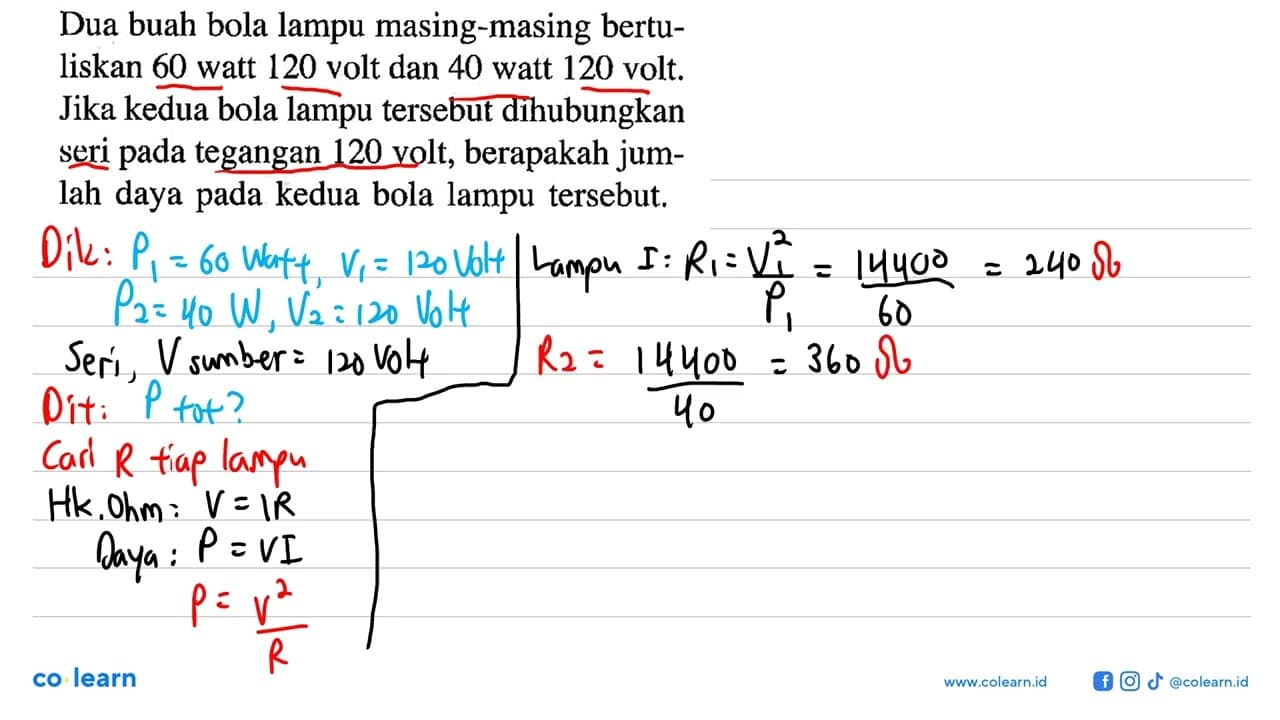 Dua buah bola lampu masing-masing bertu-
liskan 60 watt 120 volt dan 40 watt 120 volt.
Jika kedua bola lampu tersebut dihubungkan
seri pada tegangan 120 volt, berapakah jum-
lah daya pada kedua bola lampu tersebut.
Dik: P₁ = 60 Watt, V₁ = 120 Volt
P₂ = 40 W, V₂ = 120 Volt
Seri, V sumber = 120 Volt
Dit: P tot?
Cari R tiap lampu
Hk. Ohm: V = IR
Daya: P = VI
P = V²/R
Lampu I: R₁ = V₁²/P₁ = 14400/60 = 240 Ω
R₂ = 14400/40 = 360 Ω
co learn
www.colearn.id
@colearn.id